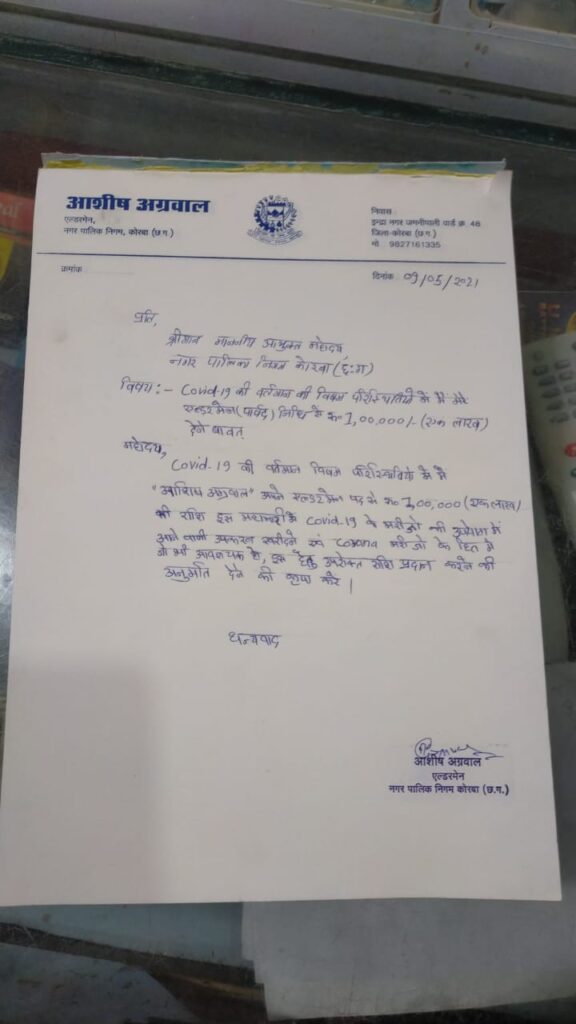 आशीष अग्रवाल
एल्डरमेन,
नगर पालिक निगम, कोरबा (छ.ग.)
निवास :
इन्द्रा नगर जमनीपाली वार्ड क्र. 48
जिला-कोरबा (छ.ग.)
मो. 9827161335
क्रमांक
दिनांक 09/05/2021
प्रति,
श्रीमान माननीय आयुक्त महोदय
नगर पालिका निगम कोरबा (छ:ग)
विषय :- Covid-19 की वर्तमान की विषम परिस्थितियों में मैं मेरे
एल्डरमेन (पार्षद) निधि से रू० 1,00,000/- (एक लाख)
देने बाबत्
महोदय,
Covid-19 की वर्तमान विषम परिस्थितियों में मैं
"आशिष अग्रवाल" अपने एल्डरमेन पद से रू० 1,00,000 (एक लाख)
की राशि इस महामारी में Covid-19 के मरीजों की उपयोग में
आने वाली उपकरण खरीदने एवं Corona मरीजों के हित में
जो भी आवश्यक है, इस हेतु उपरोक्त राशि प्रदान करने की
अनुमति देने की कृपा करें |
धन्यवाद
आशीष अग्रवाल
एल्डरमेन
नगर पालिक निगम कोरबा (छ.ग.)